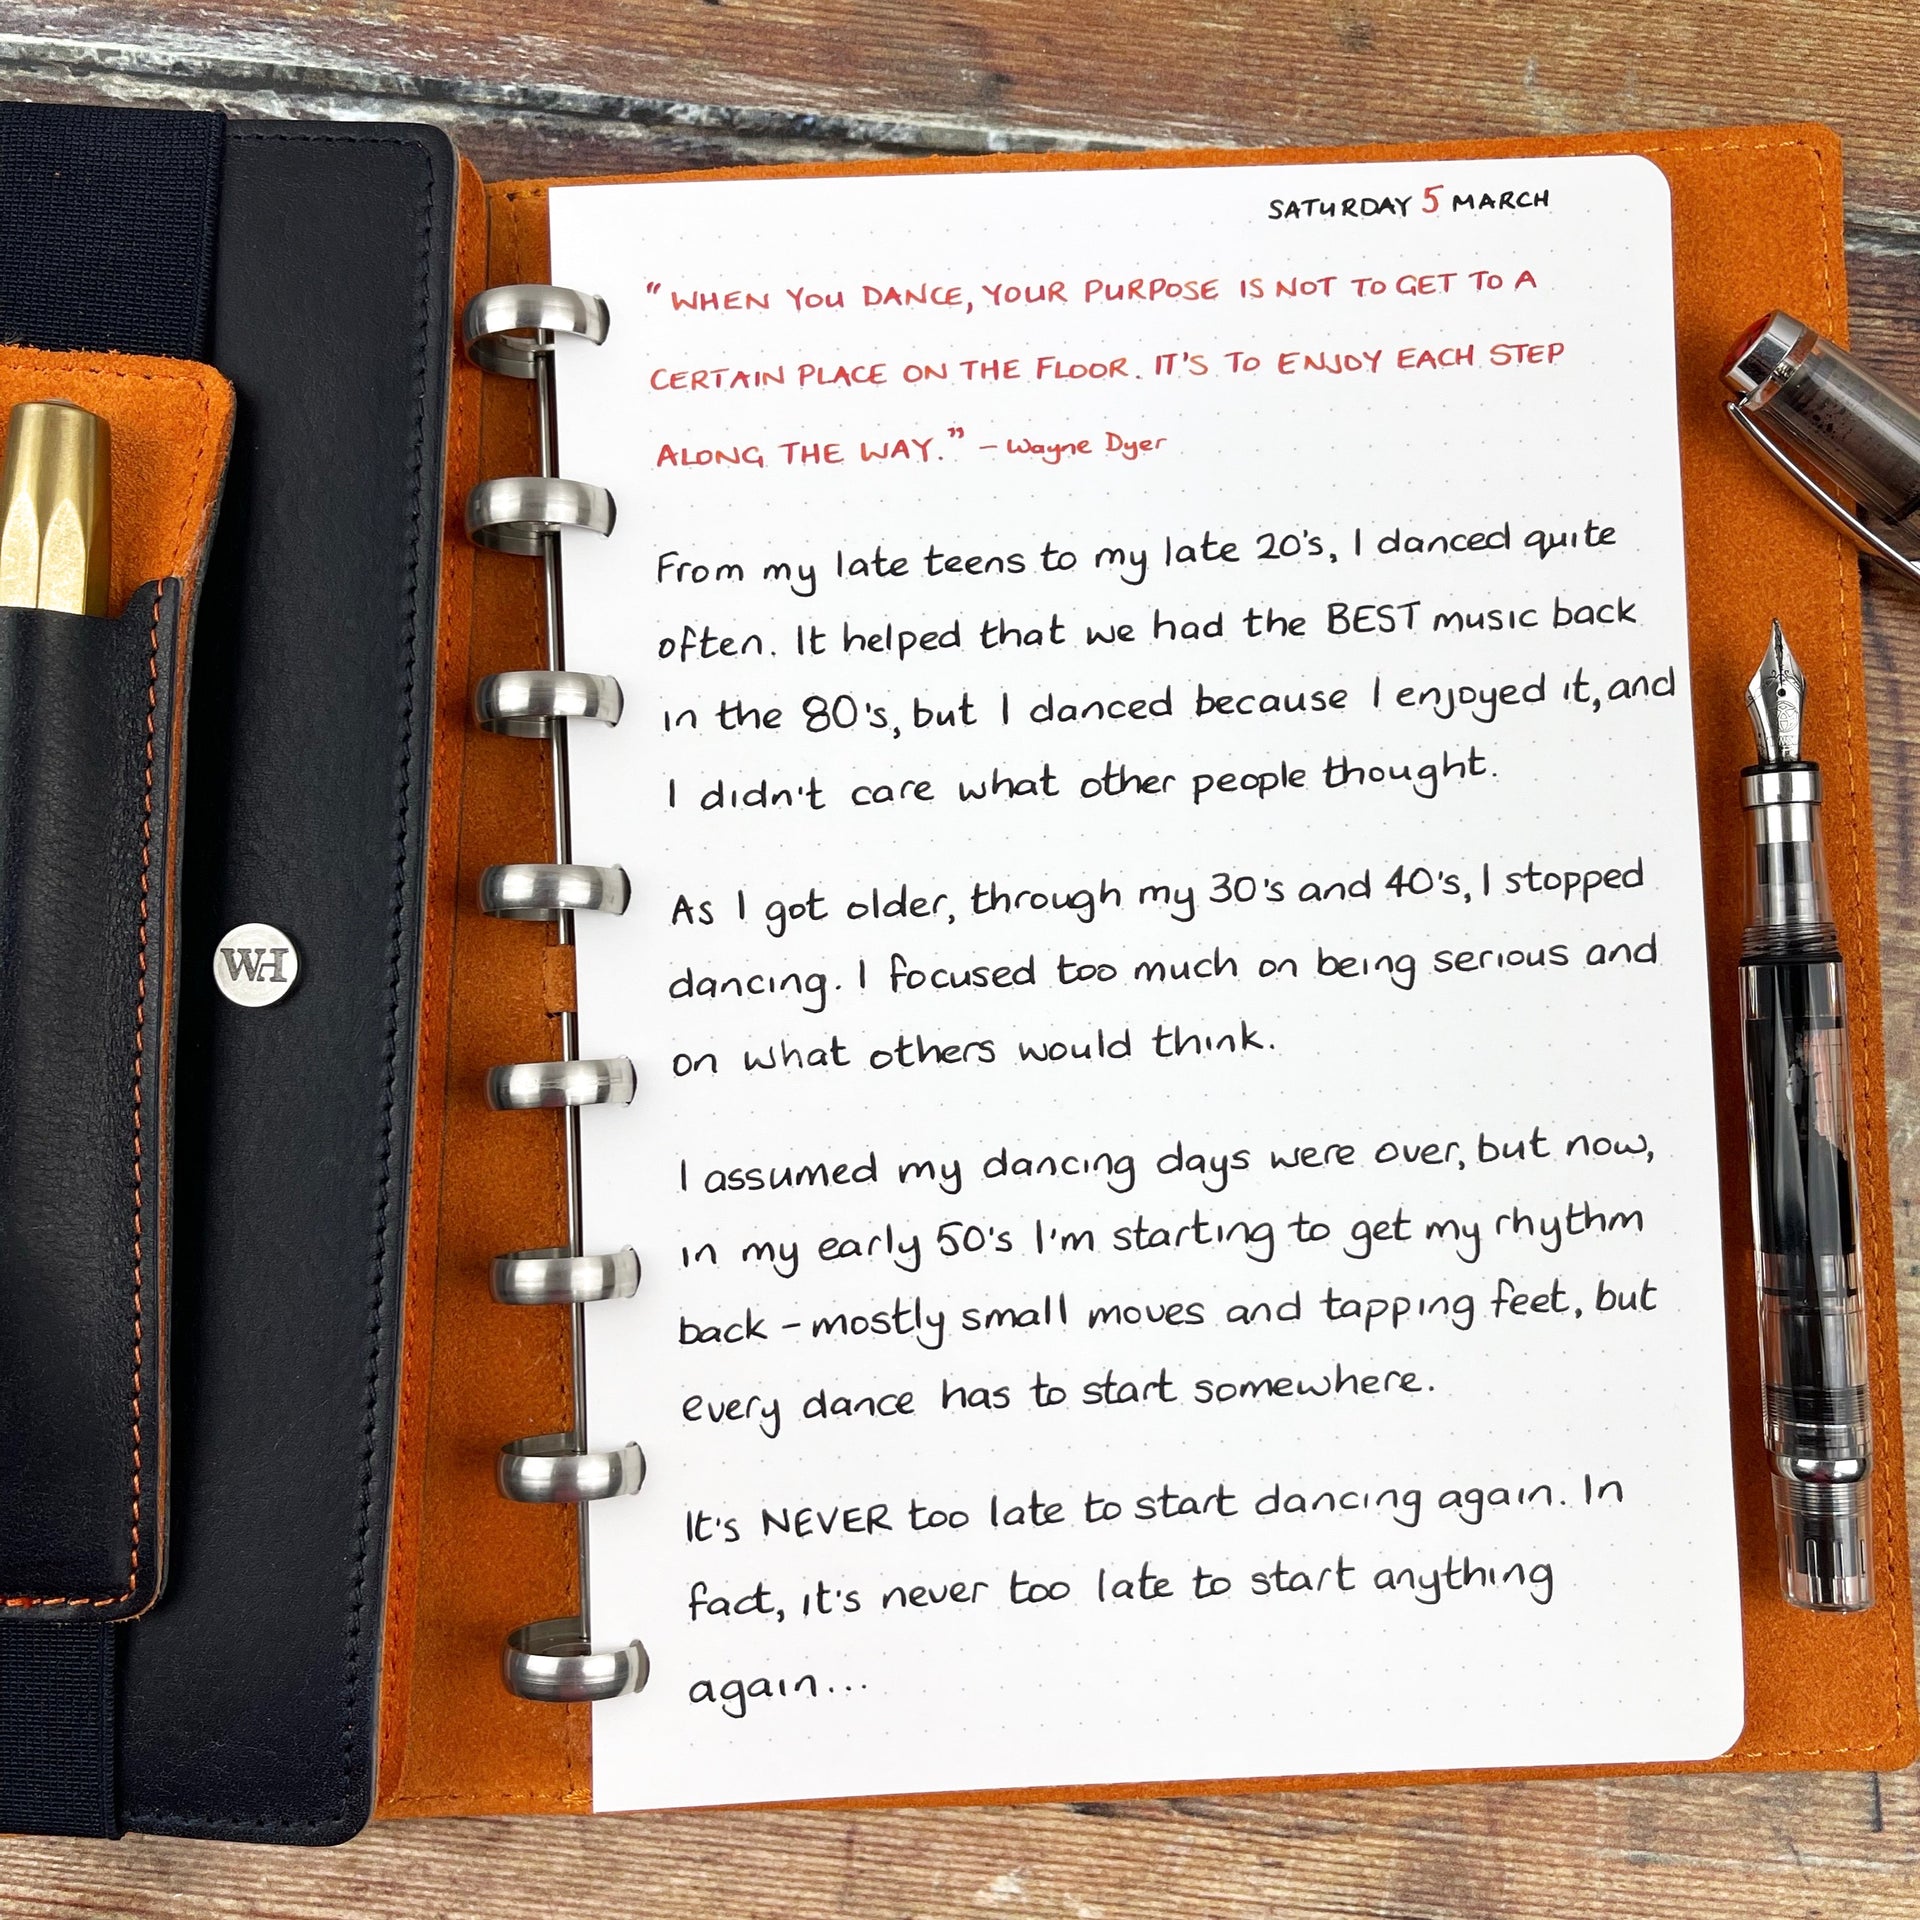 SATURDAY 5 MARCH
"WHEN YOU DANCE, YOUR PURPOSE IS NOT TO GET TO A
CERTAIN PLACE ON THE FLOOR. IT'S TO ENJOY EACH STEP
ALONG THE WAY." - Wayne Dyer
From my late teens to my late 20's, I danced quite
often. It helped that we had the BEST music back
in the 80's, but I danced because I enjoyed it, and
I didn't care what other people thought.
As I got older, through my 30's and 40's, I stopped
dancing. I focused too much on being serious and
on what others would think.
I assumed my dancing days were over, but now,
in my early 50's I'm starting to get my rhythm
back - mostly small moves and tapping feet, but
every dance has to start somewhere.
It's NEVER too late to start dancing again. In
fact, it's never too late to start anything
again...
WH